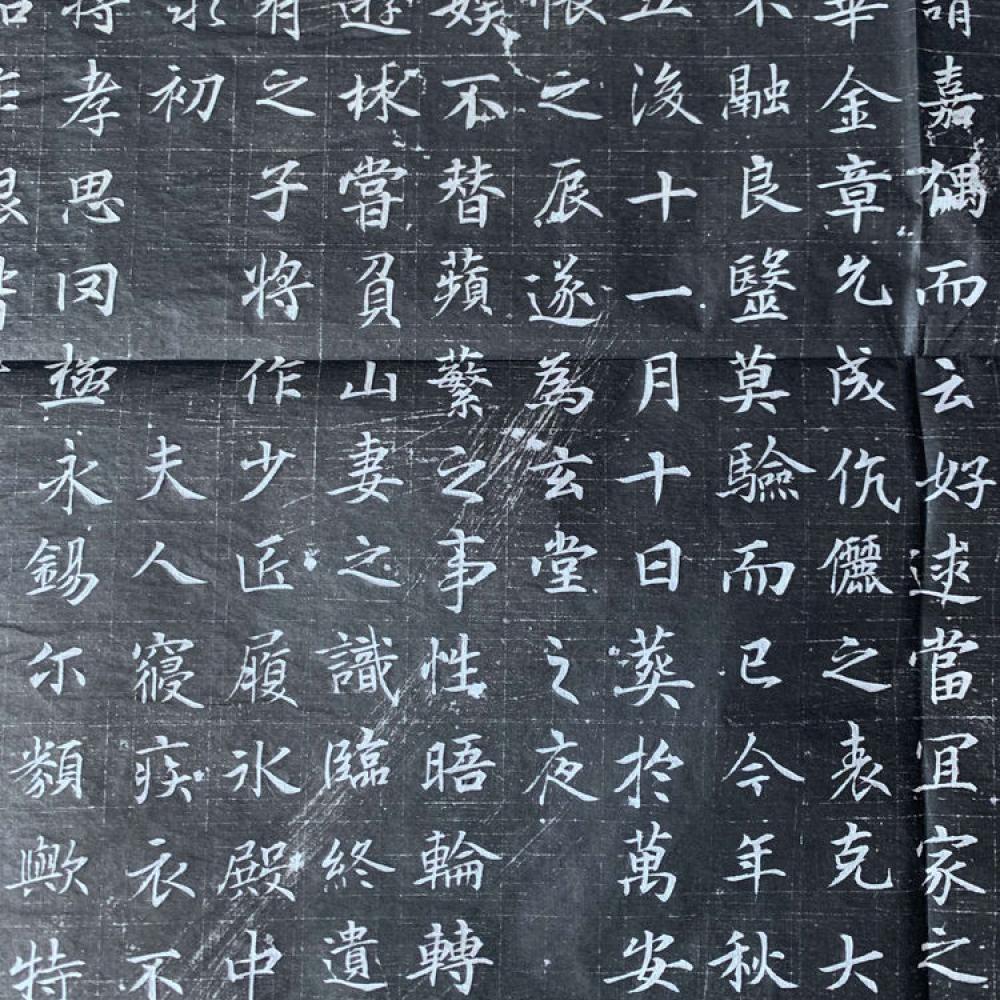 嘉偶而云好逑當宜家之
華金章允成伉儷之表克大
不融良毉莫驗而已今年秋
五後十一月十日葬於萬安
恨之辰遂為玄堂之夜
娛不替蘋蘩之事性晤輪轉
遊林嘗負山妻之識臨終遺
有之子將作少匠履冰殿中
初夫人寢疾衣不
將孝思罔極永錫尔類歟特